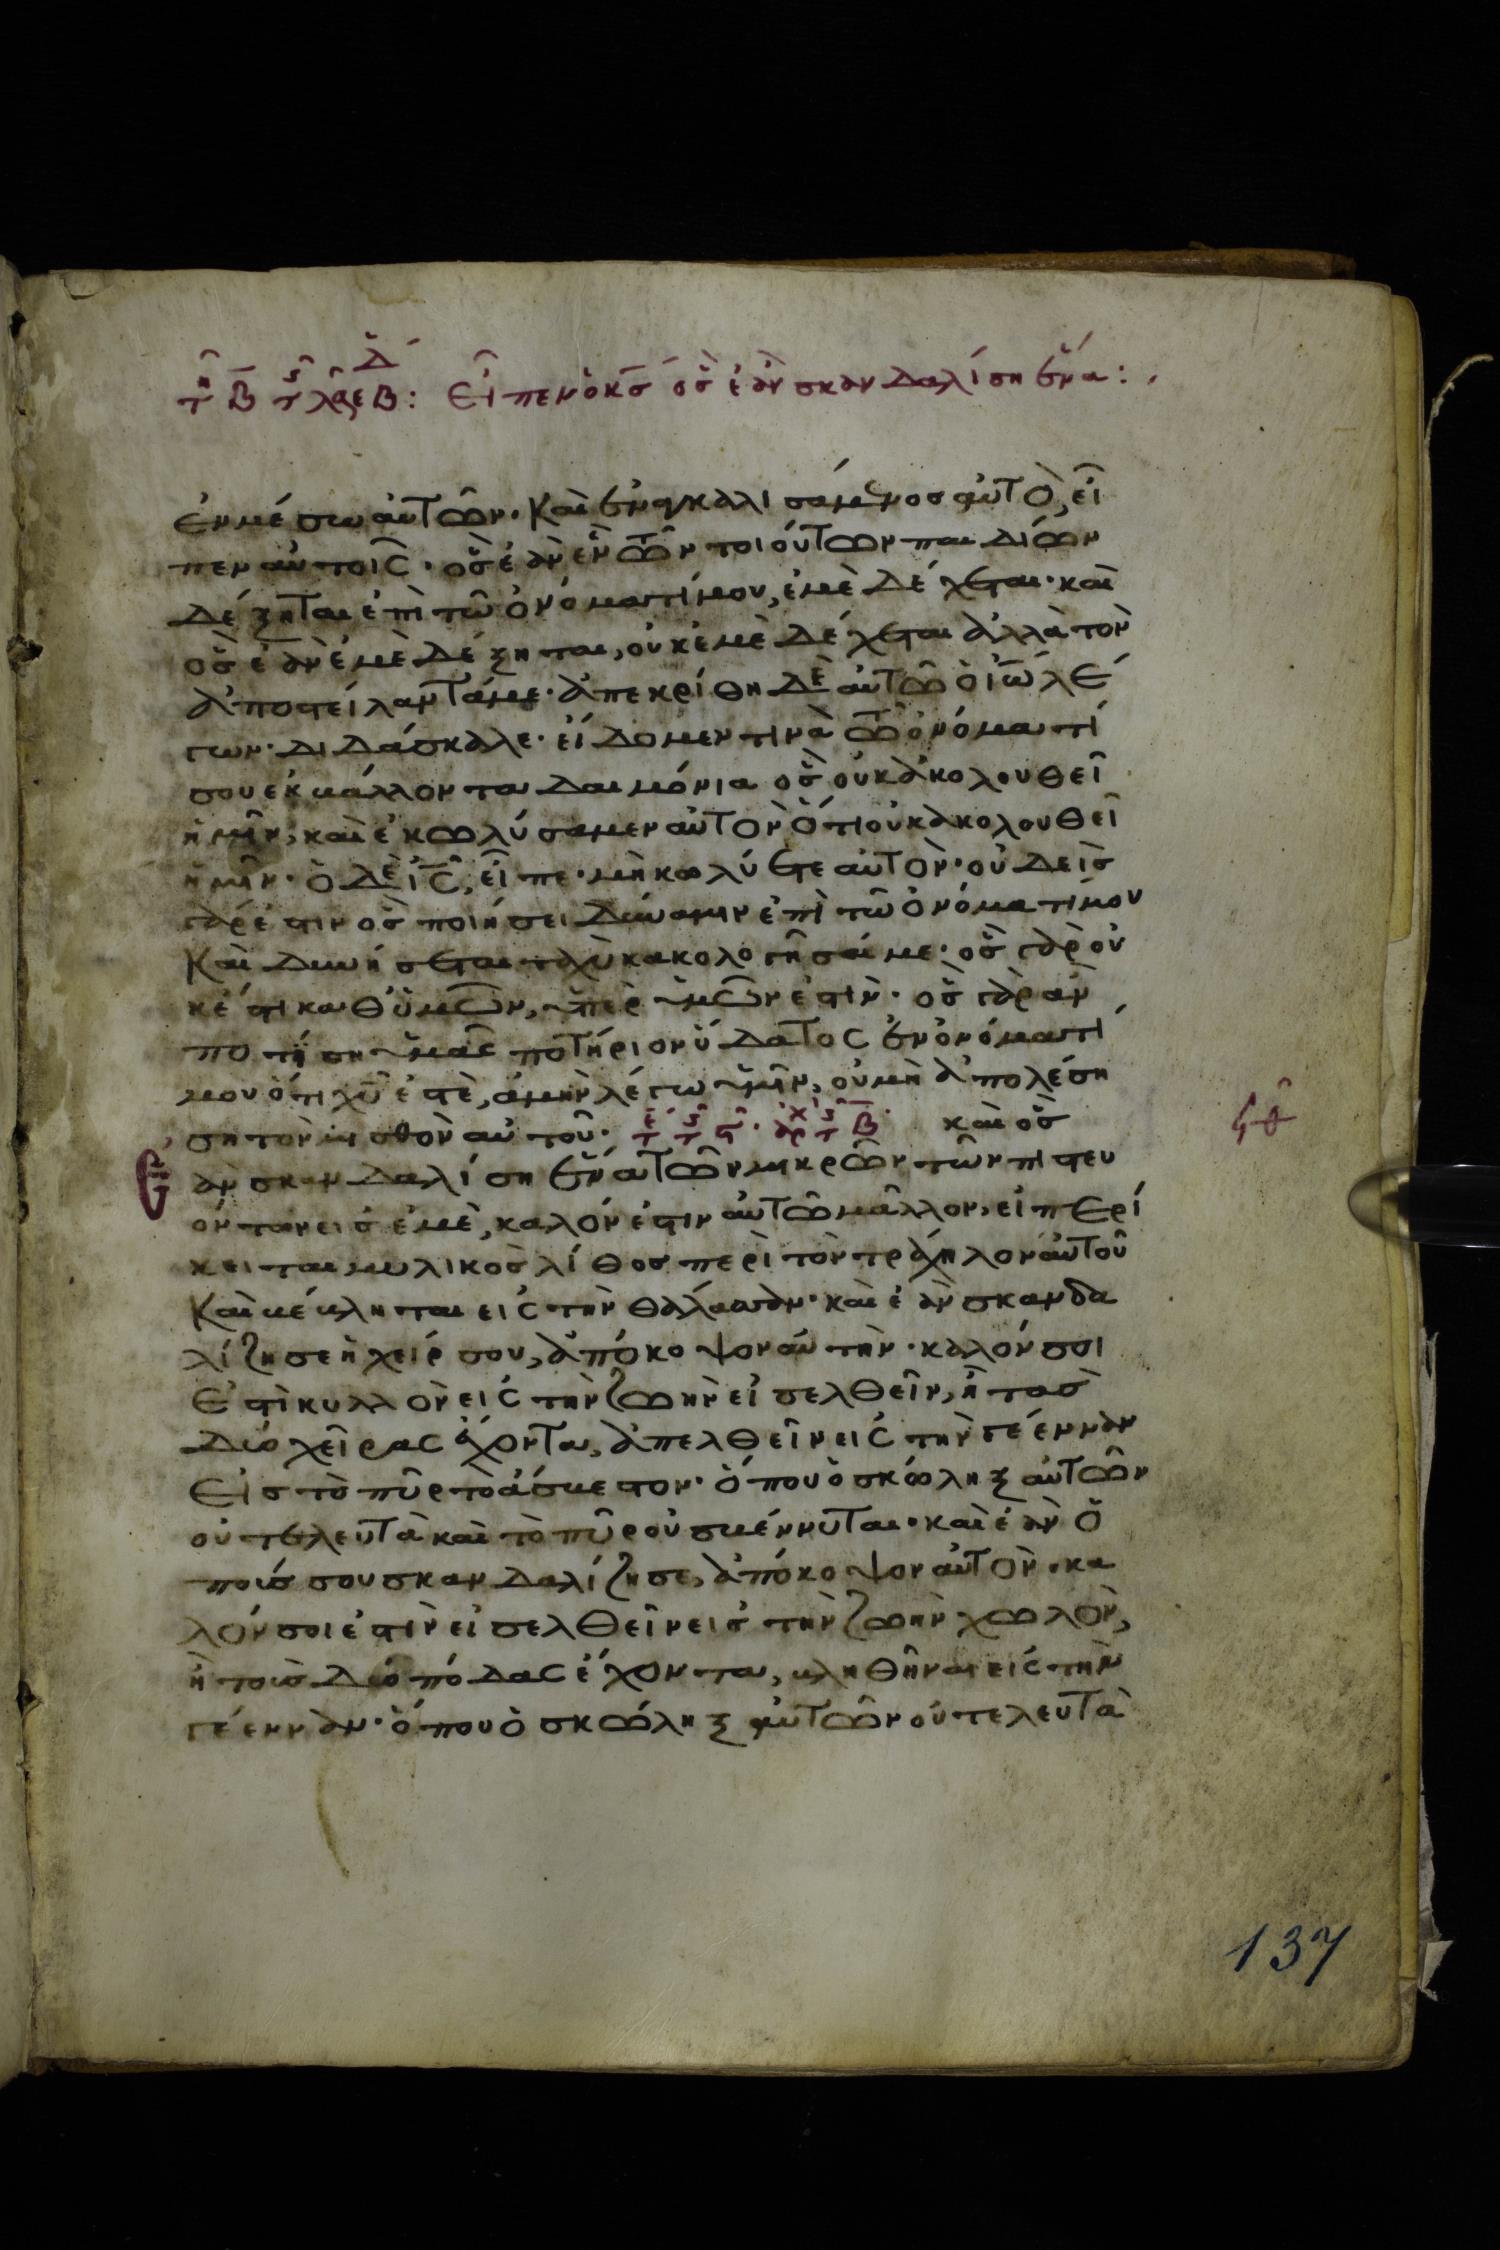 τῇ Β τ λς εΒ: Εἶπεν ὁ κς ὃς ἐὰν σκανδαλίση ἕνα:
ἐν μέσω αὐτῶν· Καὶ ἐναγκαλισάμενος αὐτὸ, εἶ
πεν αὐτοῖς· ὃς ἐὰν ἓν τῶν τοιούτων παιδίων
δέξηται ἐπὶ τῶ ὀνόματί μου, ἐμὲ δέχεται· καὶ
ὃς ἐὰν ἐμὲ δέξηται, οὐκ ἐμὲ δέχεται ἀλλὰ τὸν
ἀποστείλαντά με· ἀπεκρίθη δὲ αὐτῶ ὁ ἰω λέ
γων· διδάσκαλε· εἴδομεν τινὰ τῶ ὀνόματί
σου ἐκβάλλοντα δαιμόνια ὃς οὐκ ἀκολουθεῖ
ἡμῖν, καὶ ἐκωλύσαμεν αὐτὸν ὅτι οὐκ ἀκολουθεῖ
ἡμῖν· ὁ δὲ ις, εἶπε· μὴ κωλύετε αὐτόν· οὐδεὶς
γάρ ἐστιν ὃς ποιήσει δύναμιν ἐπὶ τῶ ὀνόματί μου
Καὶ δυνήσεται ταχὺ κακολογῆσαί με· ὃς γὰρ οὐ
κ ἔστι καθ' ὑμῶν, ὑπὲρ ὑμῶν ἐστὶν· ὃς γὰρ ἂν
ποτίση ὑμᾶς ποτήριον ὕδατος ἐν ὀνόματί
μου ὅτι χυ ἐστὲ, ἀμὴν λέγω ὑμῖν, οὐ μὴ ἀπολέση
ση τὸν μισθὸν αὐτοῦ· καὶ ὃς
ἂν σκανδαλίση ἕνα τῶν μικρῶν τῶν πιστευ
όντων εἰς ἐμὲ, καλόν ἐστιν αὐτῶ μᾶλλον, εἰ περί
κειται μυλικὸς λίθος περὶ τὸν τράχηλον αὐτοῦ
Καὶ βέβληται εἰς τὴν θάλασσαν· καὶ ἐὰν σκανδα
λίζη σε ἡ χείρ σου, ἀπόκοψον αὐτήν· καλόν σοι
ἐστὶ κυλλὸν εἰς τὴν ζωὴν εἰσελθεῖν, ἢ τὰς
δύο χεῖρας ἔχοντα, ἀπελθεῖν εἰς τὴν γέενναν
Εἰς τὸ πῦρ τὸ ἄσβεστον· ὅπου ὁ σκώληξ αὐτῶν
οὐ τελευτᾶ καὶ τὸ πῦρ οὐ σβέννυται· καὶ ἐὰν ὁ
ποῦς σου σκανδαλίζη σε, ἀπόκοψον αὐτόν· κα
λόν σοι ἐστὶν εἰσελθεῖν εἰς τὴν ζωὴν χωλὸν,
ἢ τοὺς δύο πόδας ἔχοντα, βληθῆναι εἰς τὴν
γέενναν· ὅπου ὁ σκώληξ αὐτῶν οὐ τελευτᾶ
137